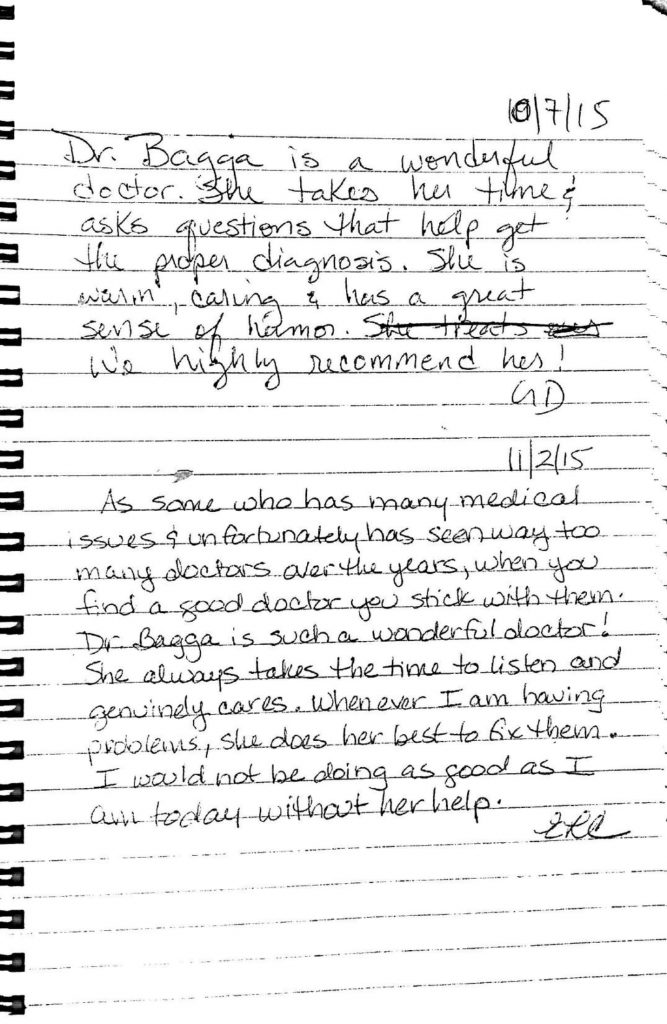 10/7/15
Dr. Bagga is a wonderful
doctor. She takes her time &
asks questions that help get
the proper diagnosis. She is
warm, caring & has a great
sense of humor. She treats
We highly recommend her!
GD
11/2/15
As some who has many medical
issues & unfortunately has seen way too
many doctors over the years, when you
find a good doctor you stick with them.
Dr. Bagga is such a wonderful doctor!
She always takes the time to listen and
genuinely cares. Whenever I am having
problems, she does her best to fix them.
I would not be doing as good as I
am today without her help.